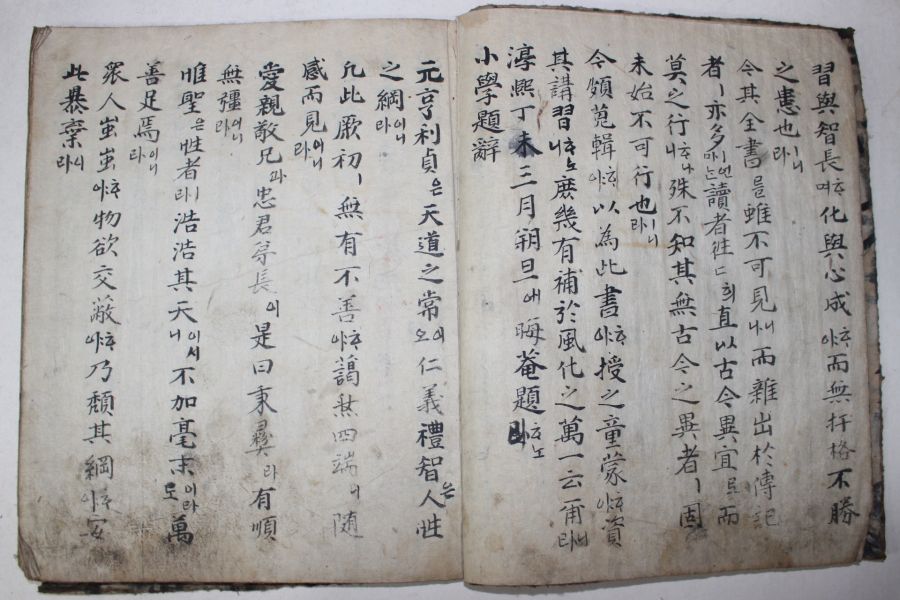 習與智長ᄒᆞ며化與心成ᄒᆞ야而無扞格不勝
之患也ㅣ니라
今其全書를雖不可見이나而雜出於傳記
者ㅣ亦多이언마는讀者往〻히直以古今異宜로而
莫之行ᄒᆞ나殊不知其無古今之異者ㅣ固
未始不可行也ㅣ니라
今頗蒐輯ᄒᆞ야以為此書ᄒᆞ야授之童蒙ᄒᆞ야資
其講習ᄒᆞ노庶幾有補於風化之萬一云爾
淳熙丁未三月朔旦에晦菴題ᄒᆞ노
小學題辭
元亨利貞은天道之常이오仁義禮智人性은
之綱이니라
凡此厥初ㅣ無有不善ᄒᆞ야藹然四端이隨
感而見이니라
愛親敬兄과忠君弟長이是曰秉彝라有順
無彊이니라
惟聖은性者라浩浩其天이시니不加毫末이라도萬
善足焉이니라
衆人蚩蚩ᄒᆞ야物欲交蔽ᄒᆞ야乃頹其綱ᄒᆞ야安
此暴棄니라